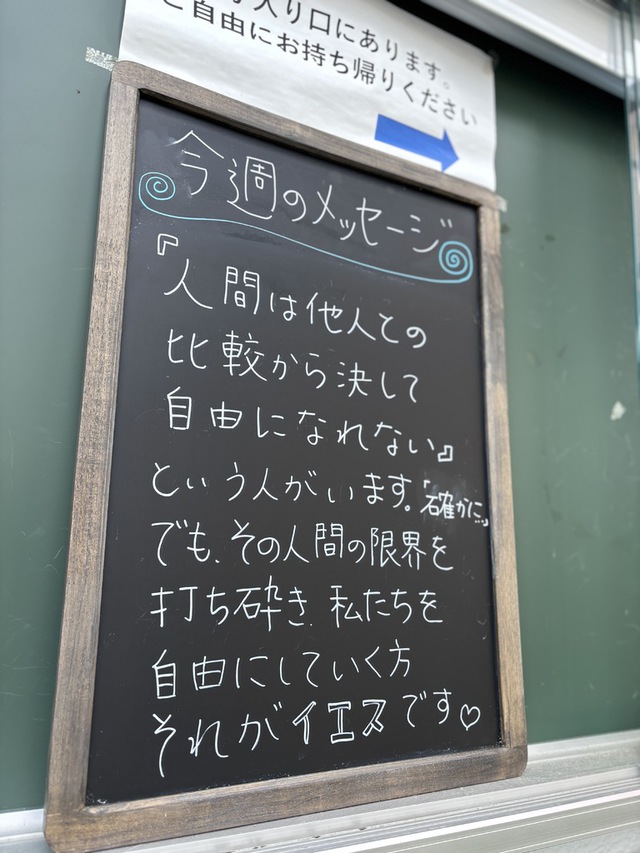 入り口にあります。
ご自由にお持ち帰りください
今週のメッセージ
『人間は他人との
比較から決して
自由になれない』
という人がいます。「確かに…」
でも、その人間の限界を
打ち砕き、私たちを
自由にしていく方
それがイエスです♡